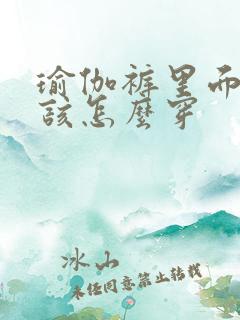 瑜伽裤里面
该怎么穿
冰山
未经同意禁止转载